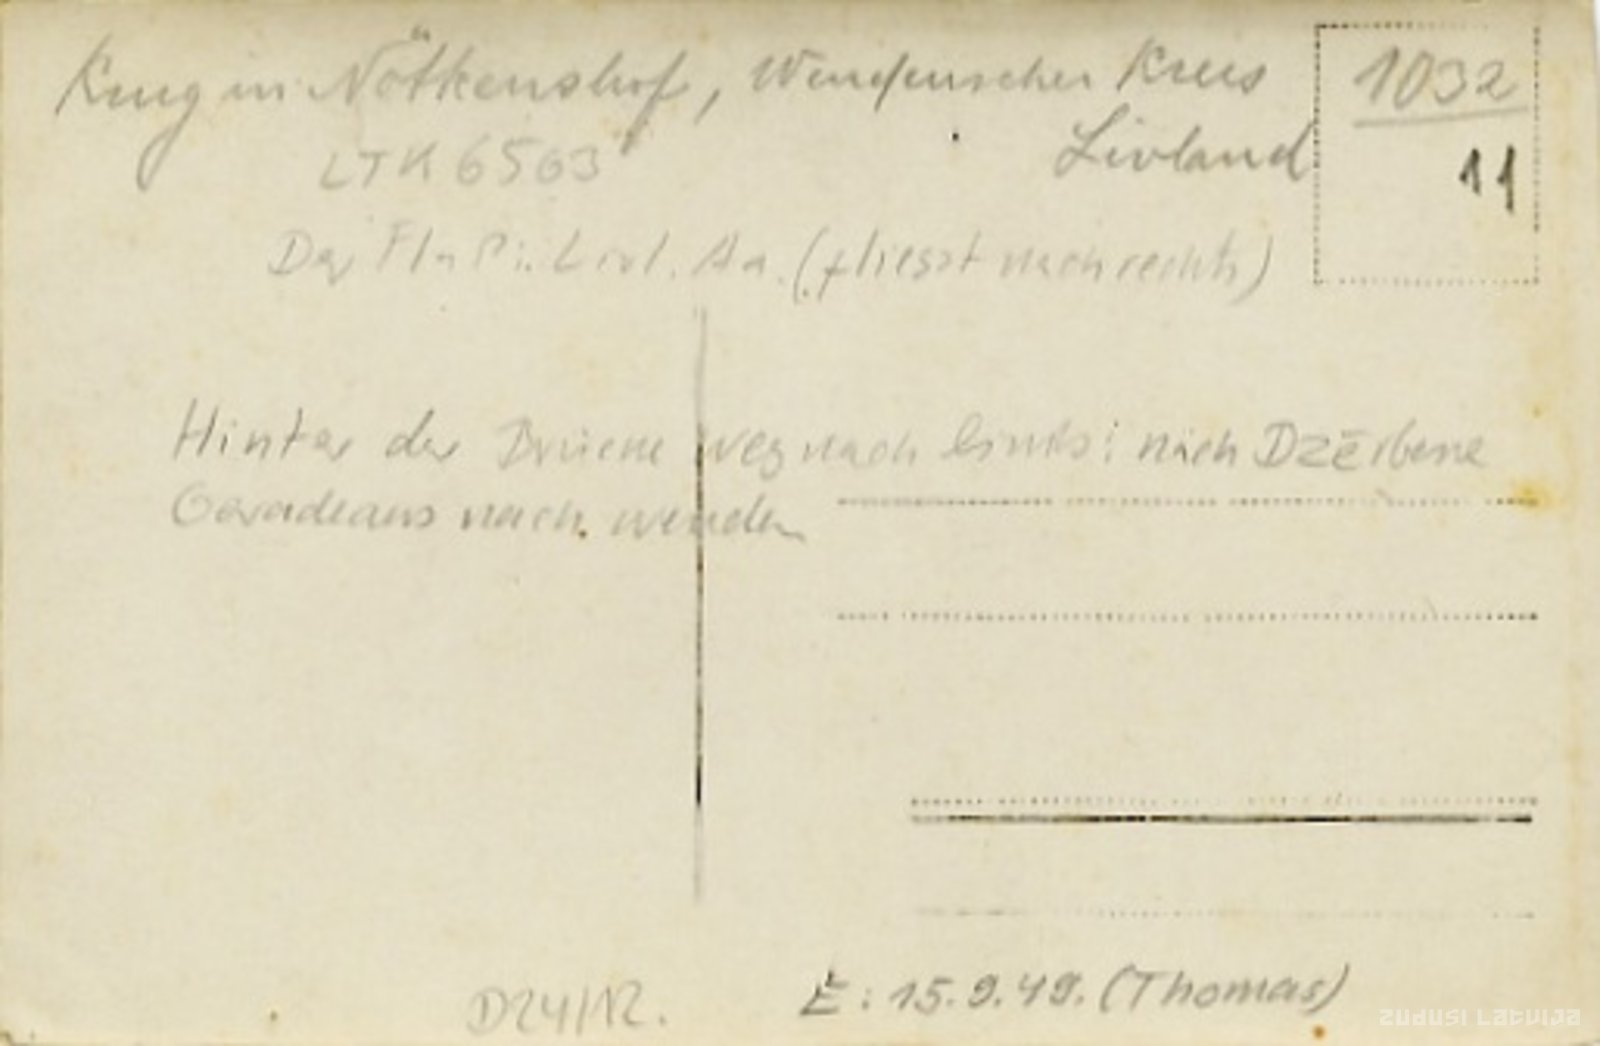 Krug in Nötkenshof, Wendenscher Kreis
1032
Livland
11
LTK 6563
Der Fluß: Livl. Aa. (fliesst nach rechts)
Hinter der Brücke weg nach links: nach Dzērbene
Geradeaus nach wenden
D24/12.
E: 15.9.49. (Thomas)
zudusi latvija